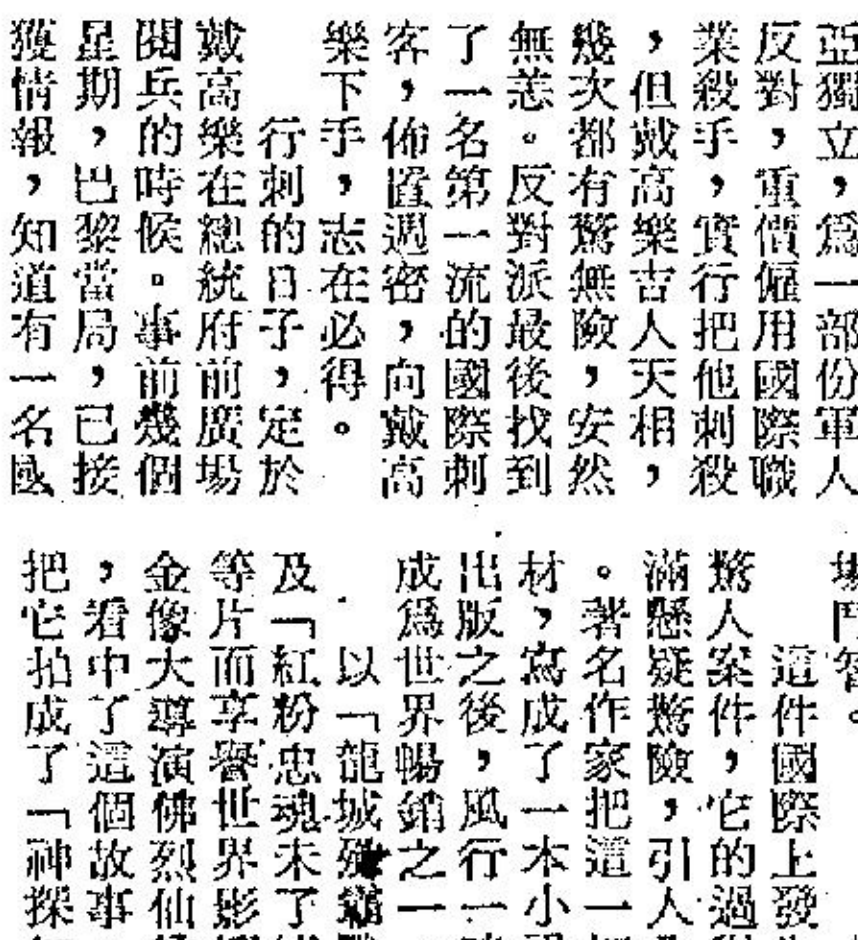 亞獨立，爲一部份軍人
反對，重價僱用國際職
業殺手，實行把他刺殺
，但戴高樂吉人天相，
幾次都有驚無險，安然
無恙。反對派最後找到
了一名第一流的國際刺
客，佈置週密，向戴高
樂下手，志在必得。
行刺的日子，定於
戴高樂在總統府前廣場
閱兵的時候。事前幾個
星期，巴黎當局，已接
獲情報，知道有一名國
場鬥智。
這件國際上發
驚人案件，它的過
滿懸疑驚險，引人
。著名作家把這一
材，寫成了一本小
出版之後，風行一
成爲世界暢銷之一
以「龍城殲霸
及「紅粉忠魂未了
等片而享譽世界影
金像大導演佛烈仙
，看中了這個故事
把它拍成了「神探